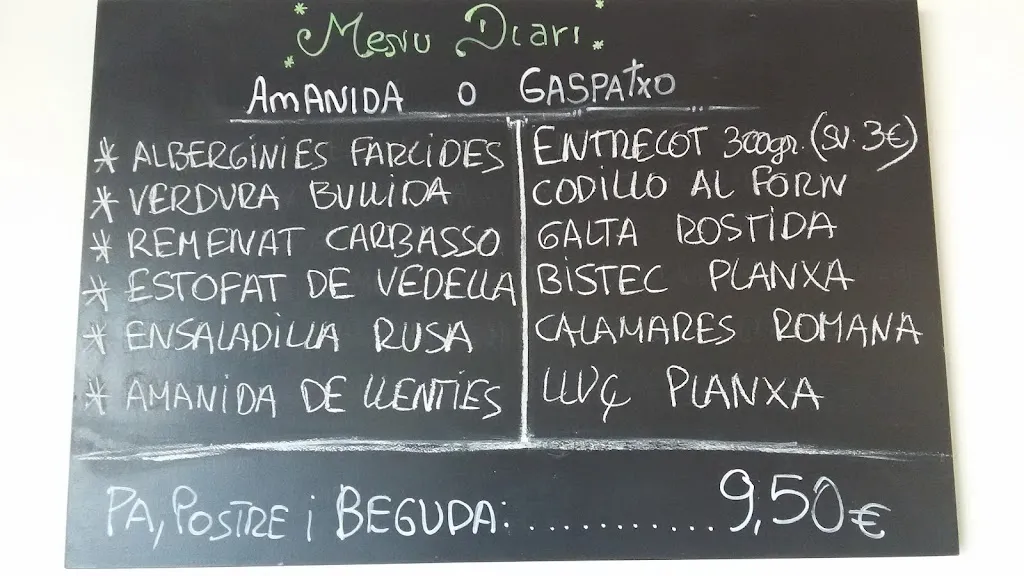 Menu Diari
AMANIDA O GASPATXO
* ALBERGINIES FARCIDES
* VERDURA BULLIDA
* REMENAT CARBASSO
* ESTOFAT DE VEDELLA
* ENSALADILLA RUSA
* AMANIDA DE LLENTIES
ENTRECOT 300gr. (SV. 3€)
CODILLO AL FORN
GALTA ROSTIDA
BISTEC PLANXA
CALAMARES ROMANA
LLUÇ PLANXA
PA, POSTRE i BEGUDA:............9,50€